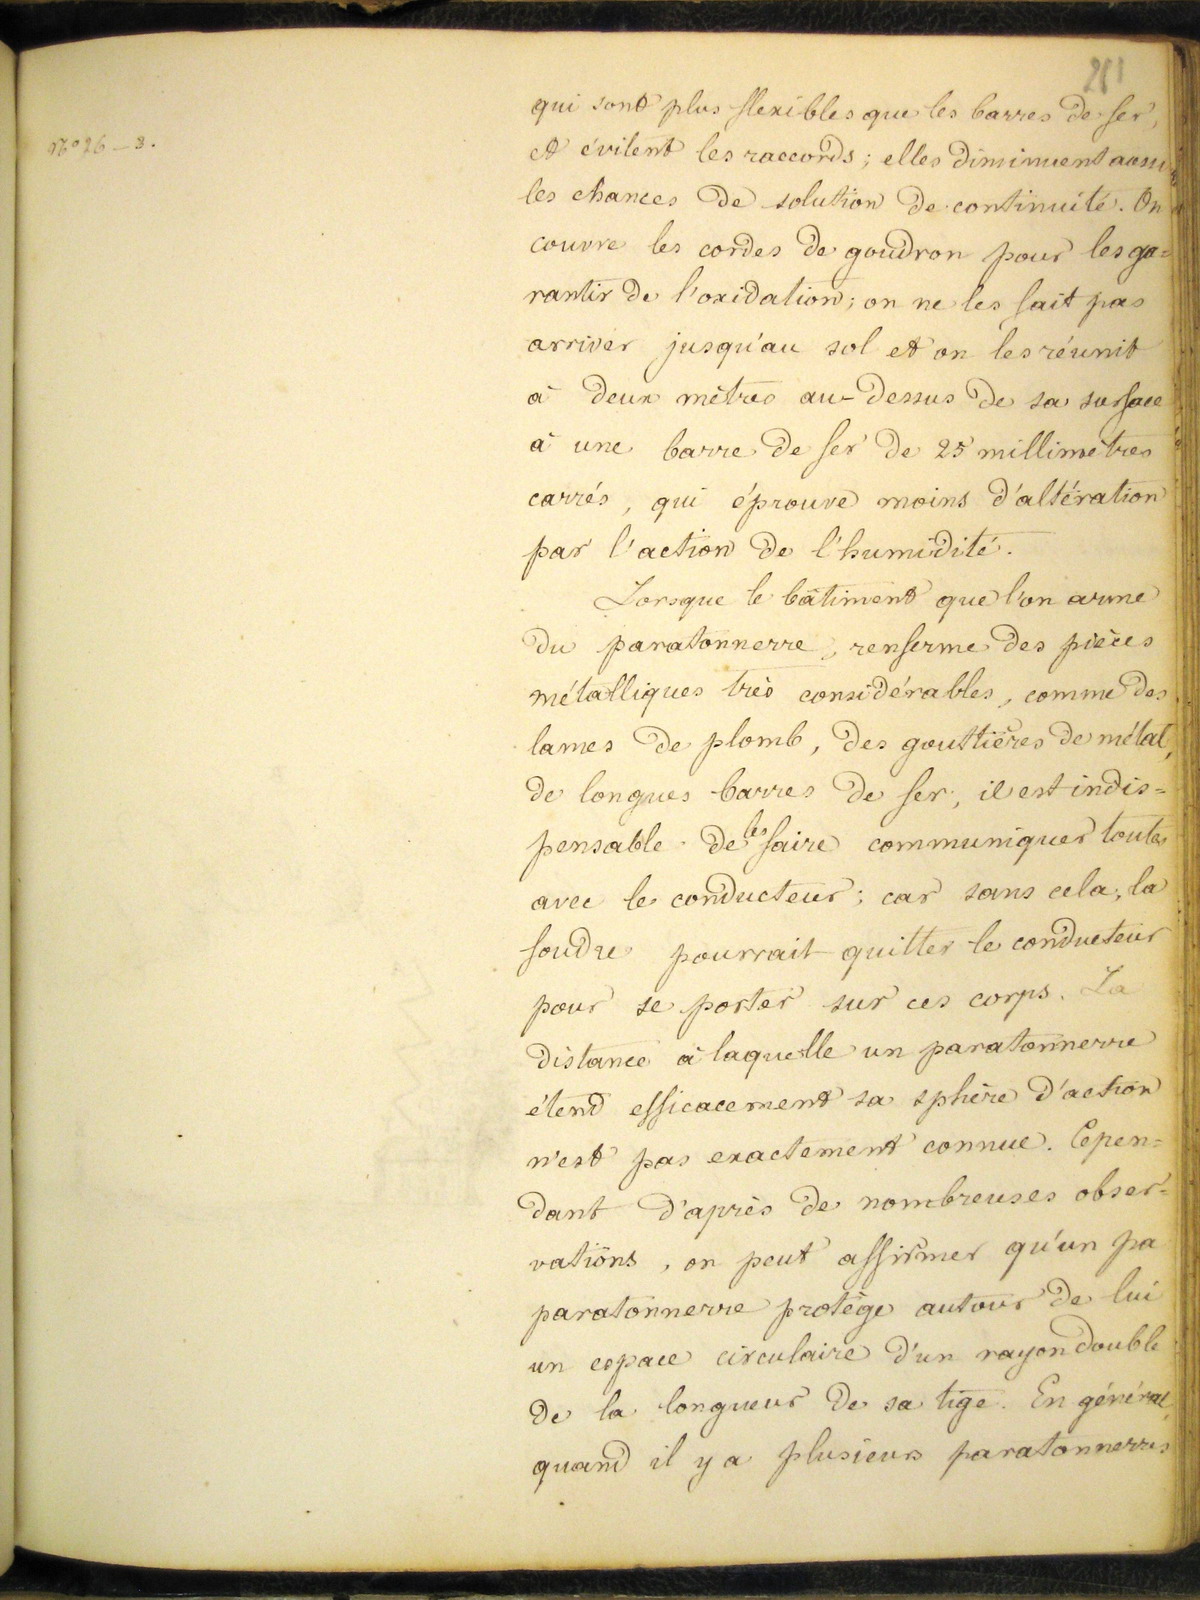 211
N° 26 - 3.
qui sont plus flexibles que les barres de fer,
et évitent les raccords; elles diminuent aussi
les chances de solution de continuité. On
couvre les cordes de goudron pour les ga=
rantir de l'oxidation; on ne les fait pas
arriver jusqu'au sol et on les réunit
à deux mètres au-dessus de sa surface
à une barre de fer de 25 millimetres
carrés, qui éprouve moins d'altération
par l'action de l'humidité.
Lorsque le bâtiment que l'on arme
du paratonnerre, renferme des pièces
métalliques très considérables, comme des
lames de plomb, des gouttières de métal,
de longues barres de fer, il est indis=
pensable de les faire communiquer toutes
avec le conducteur; car sans cela, la
foudre pourrait quitter le conducteur
pour se porter sur ces corps. La
distance à laquelle un paratonnerre
étend efficacement sa sphère d'action
n'est pas exactement connue. Cepen=
dant d'après de nombreuses obser=
vations, on peut affirmer qu'un pa
paratonnerre protège autour de lui
un espace circulaire d'un rayon double
de la longueur de sa tige. En général,
quand il y a plusieurs paratonnerres